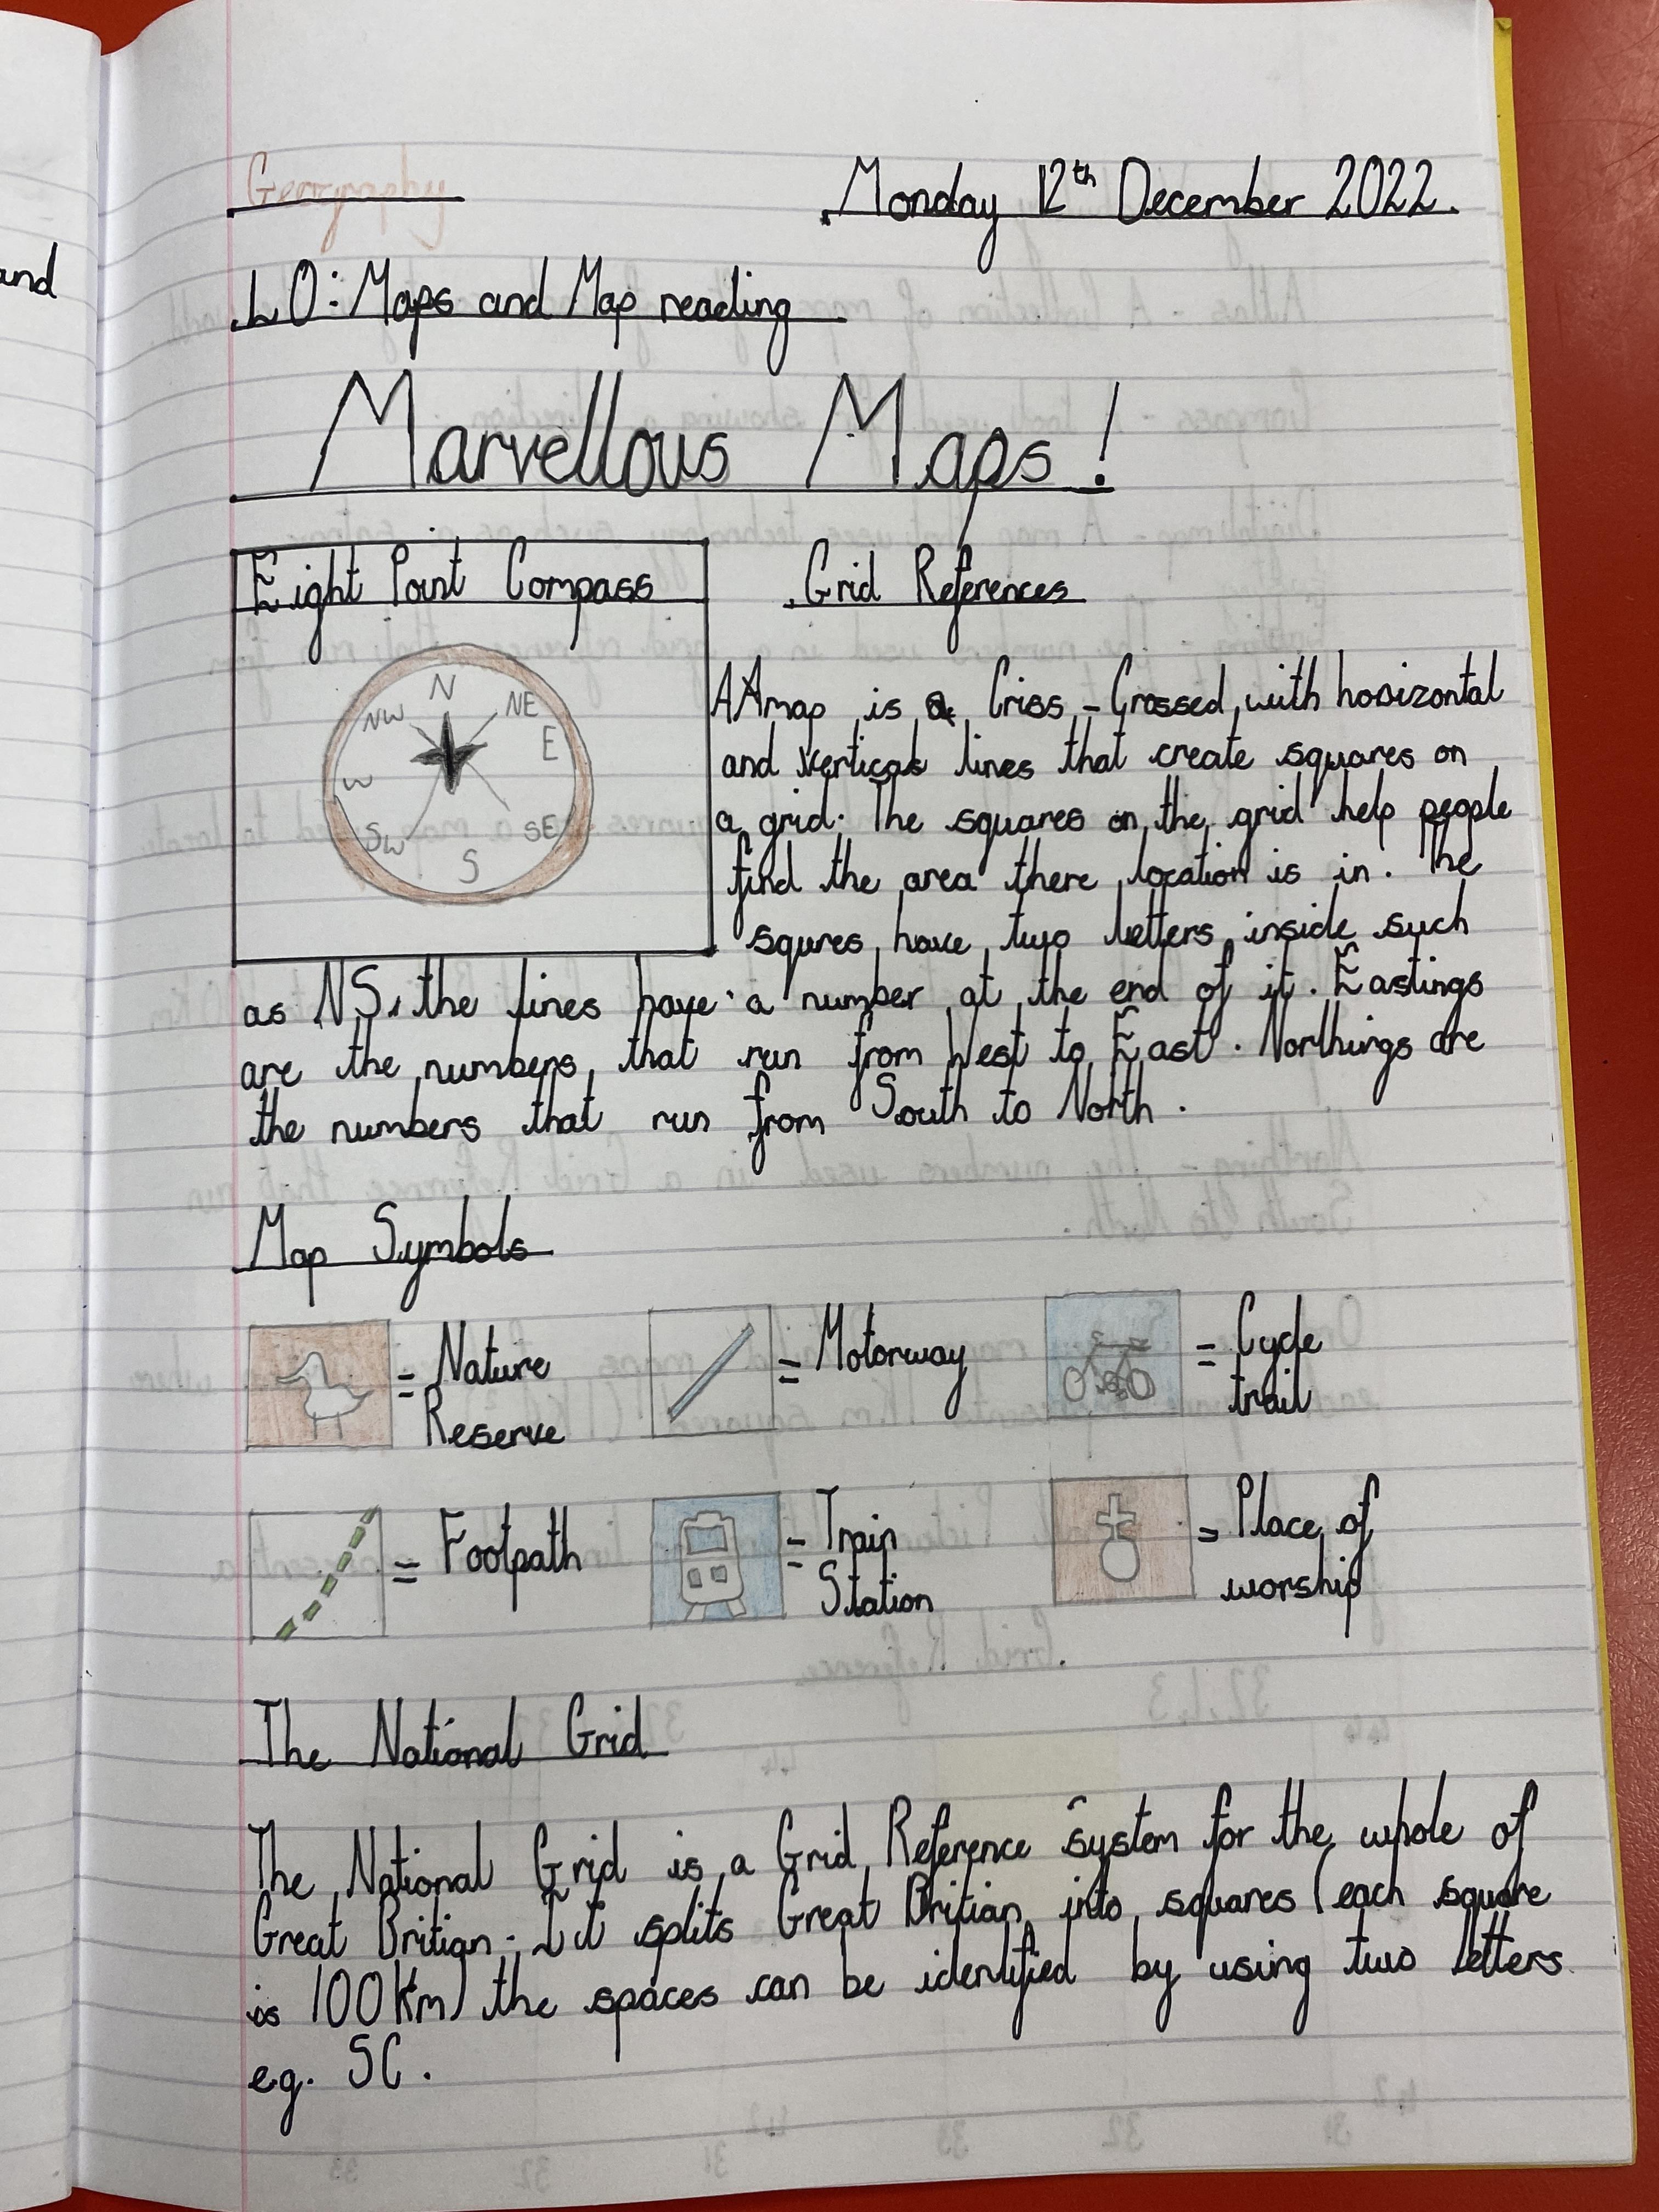 and
Geography
Monday 12th December 2022.
LO: Maps and Map reading
Marvellous Maps!
Eight Point Compass
N
NE
E
SE
S
SW
W
NW
Grid References
A map is a Criss-Crossed with horizontal
and vertical lines that create squares on
a grid. The squares on the grid help people
find the area there location is in. The
squres have two letters inside such
as NS, the lines have a number at the end of it. Eastings
are the numbers that run from West to East. Northings are
the numbers that run from South to North.
Map Symbols
= Nature Reserve
= Motorway
= Cycle trail
= Footpath
= Train Station
= Place of worship
The National Grid
The National Grid is a Grid Reference system for the whole of
Great Britian. It splits Great Britian into squares (each square
is 100Km) the spaces can be identified by using two letters
e.g. SC.